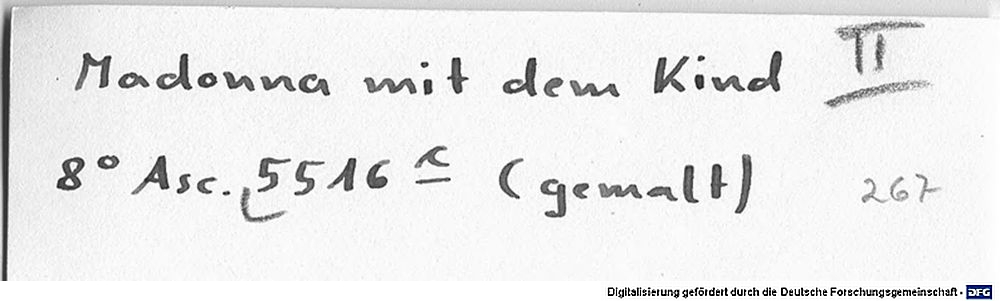 Madonna mit dem Kind II
8° Asc. 5516 c (gemalt) 267
Digitalisierung gefördert durch die Deutsche Forschungsgemeinschaft - DFG